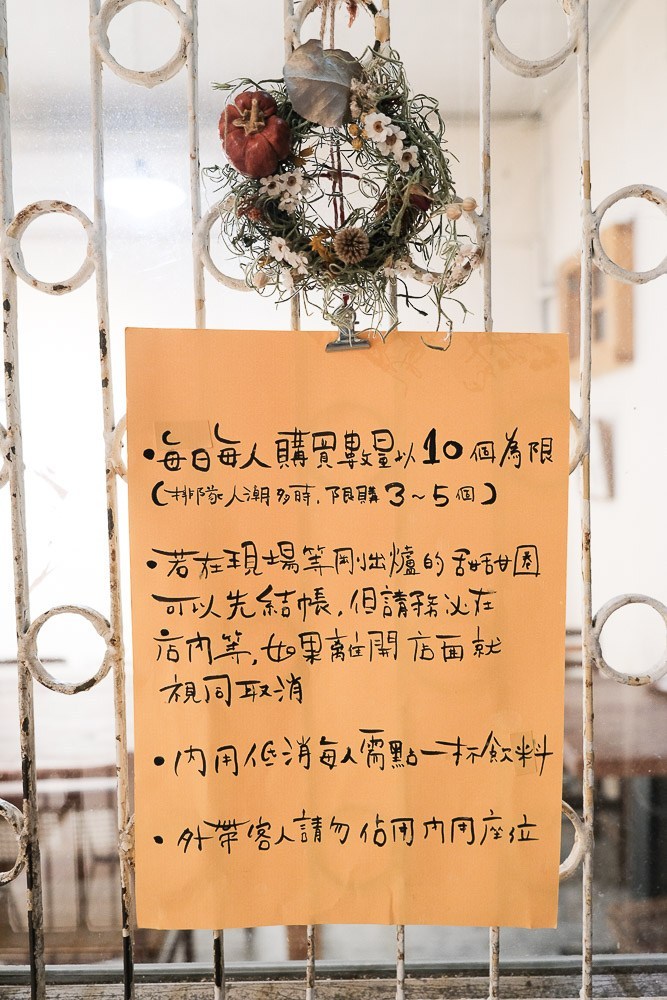 •每日每人購買數量以10個為限
(排隊人潮多時,限購3~5個)
•若在現場等剛出爐的甜甜圈
可以先結帳,但請務必在
店內等,如果離開店面就
視同取消
•內用低消每人需點一杯飲料
•外帶客人請勿佔用內用座位